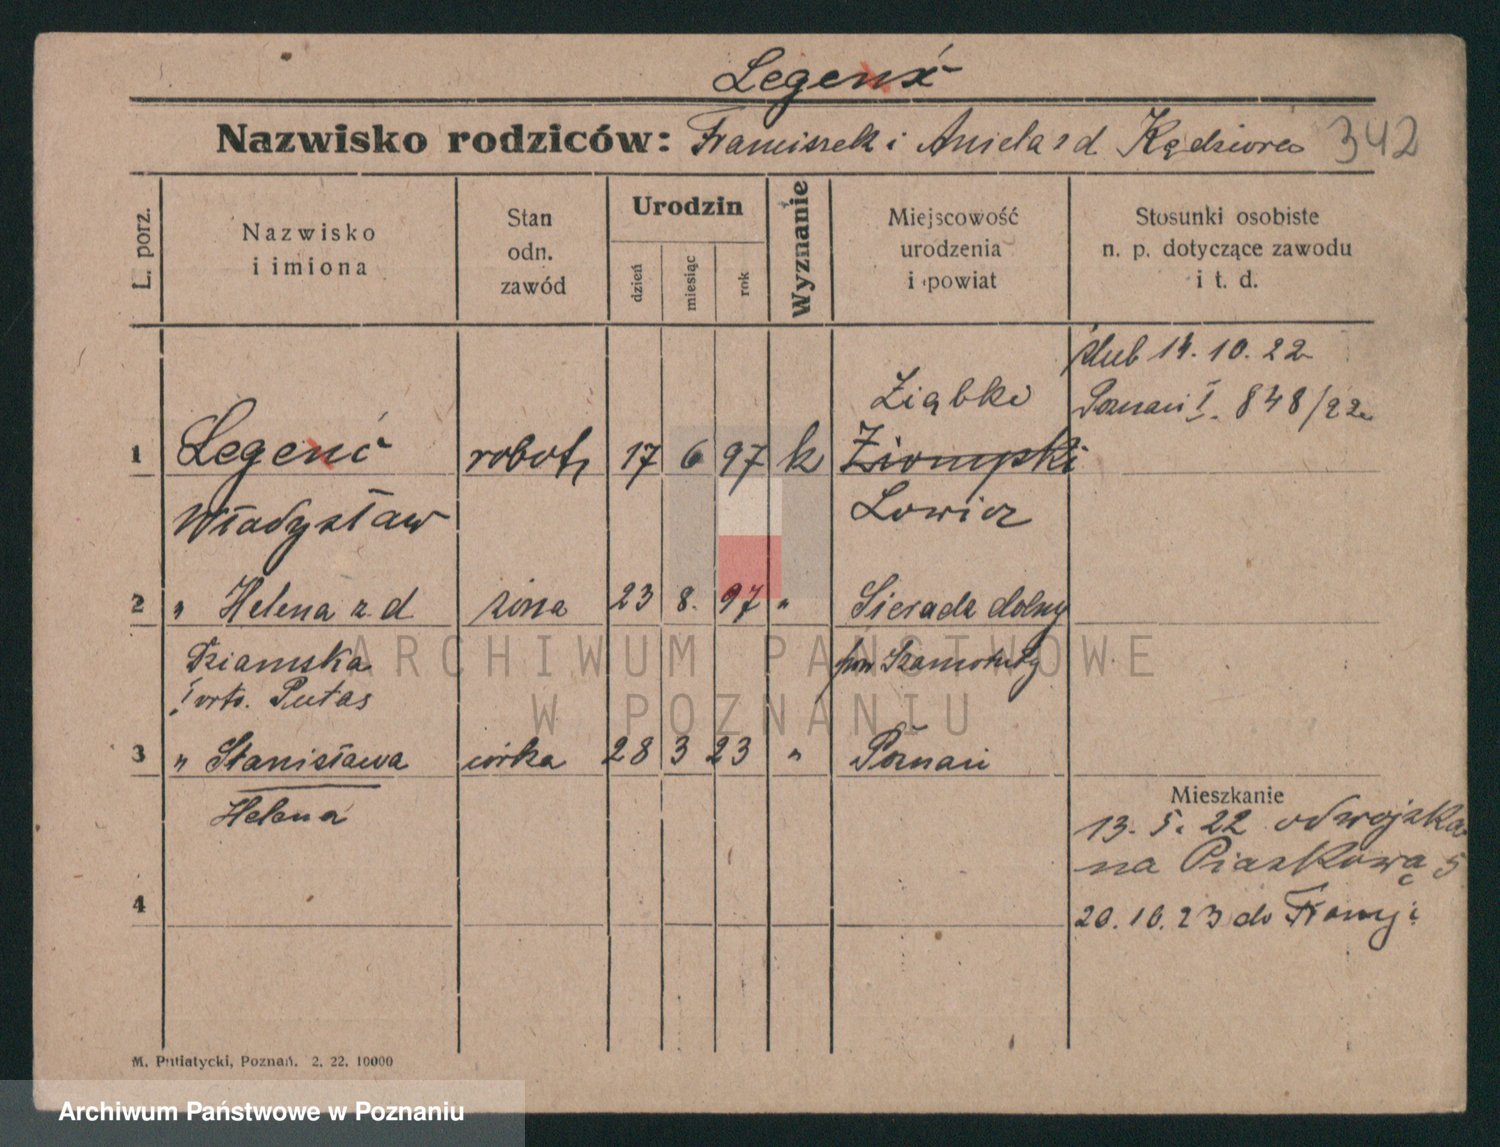 Legenź
Nazwisko rodziców: Franciszek i Aniela z d Kędziora 342
L. porz.
Nazwisko
i imiona
Stan
odn.
zawód
Urodzin
dzień
miesiąc
rok
Wyznanie
Miejscowość
urodzenia
i powiat
Stosunki osobiste
n. p. dotyczące zawodu
i t. d.
ślub 14. 10. 22
Ziąbki
Poznań I. 848/22
1 Legenć robotn 17 6 97 k Ziompski
Władysław Łowicz
2 " Helena z d żona 23 8. 97 " Sieradz dolny
Dziamska pow Szamotuły
I voto. Putas
3 " Stanisława córka 28 3 23 " Poznań
Mieszkanie
Helena
13. 5. 22 od wojska
na Piaskową 5
4
20. 10. 23 do Francji
M. Putiatycki, Poznań. 2. 22. 10000
ARCHIWUM PAŃSTWOWE
W POZNANIU
Archiwum Państwowe w Poznaniu